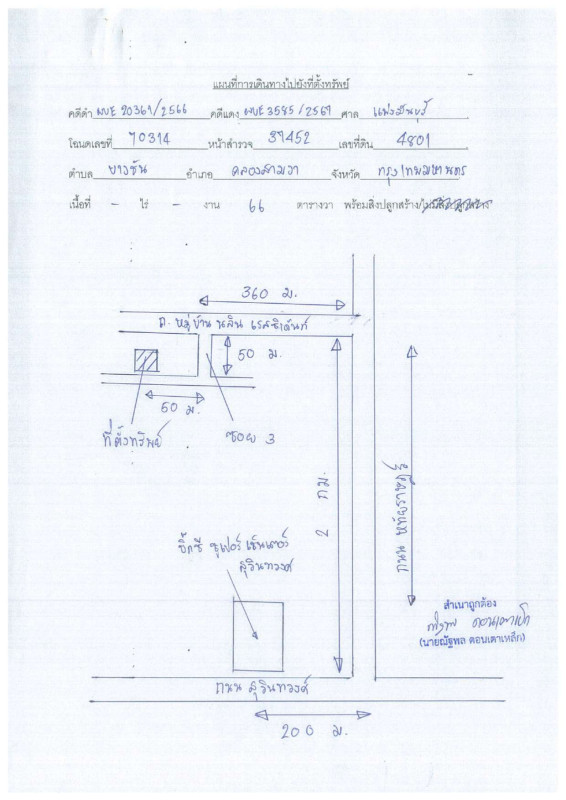 แผนที่การเดินทางไปยังที่ตั้งทรัพย์
คดีดำ ผบE 20361/2566 คดีแดง ผบE 3585/2567 ศาล แพ่งมีนบุรี
โฉนดเลขที่ 70314 หน้าสำรวจ 37452 เลขที่ดิน 4801
ตำบล บางชัน อำเภอ คลองสามวา จังหวัด กรุงเทพมหานคร
เนื้อที่ - ไร่ - งาน 66 ตารางวา พร้อมสิ่งปลูกสร้าง/
360 ม.
ถ. หมู่บ้าน นลิน เรสซิเด้นท์
50 ม.
50 ม.
ที่ตั้งทรัพย์
ซอย 3
2 กม.
ถนน หทัยราษฎร์
บิ๊กซี ซุเปอร์เซ็นเตอร์
สุวินทวงศ์
สำเนาถูกต้อง
(นายณัฐพล ดอนเตาเหล็ก)
ถนน สุวินทวงศ์
200 ม.